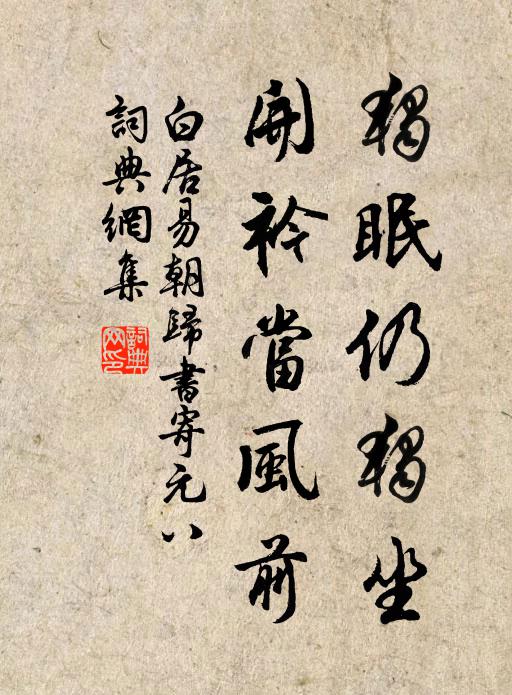 獨眠仍獨坐
開衿當風前
白居易朝歸書寄元八
詞典網集
詞典网印